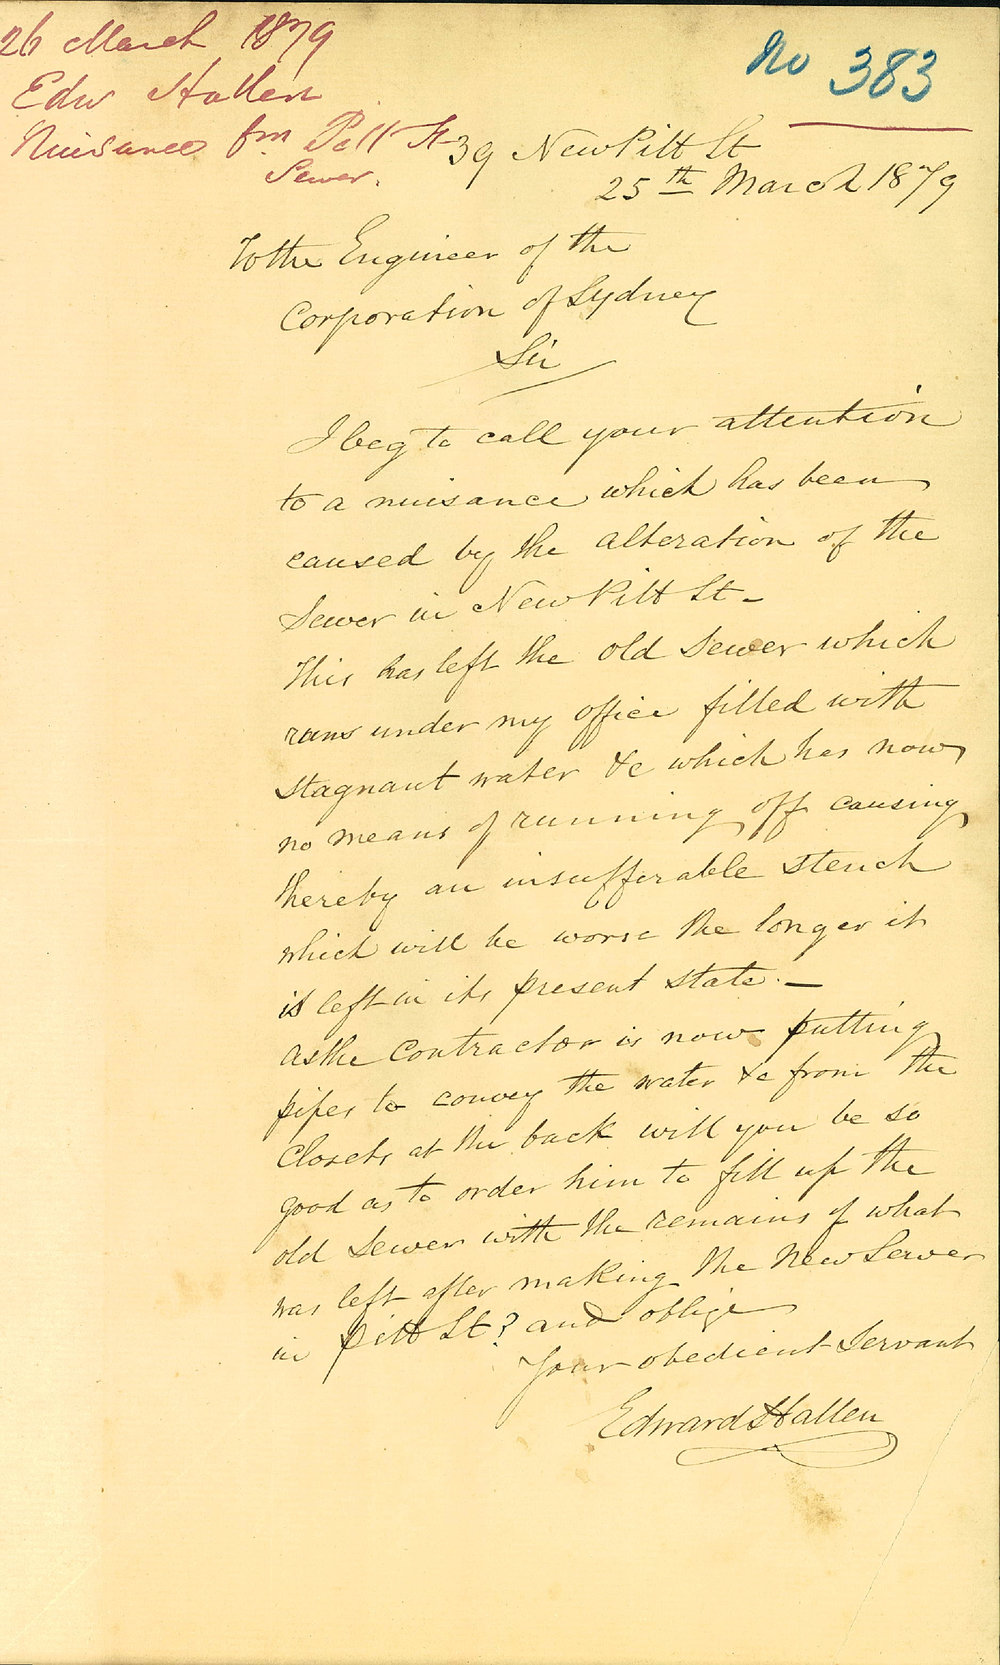 26 March 1879
Edw Hallen
Nuisance fm Pitt St
Sewer.
No 383
39 New Pitt St
25th March 1879
To the Engineer of the
Corporation of Sydney
Sir
I beg to call your attention
to a nuisance which has been
caused by the alteration of the
Sewer in New Pitt St -
This has left the old Sewer which
runs under my office filled with
stagnant water &c which has now
no means of running off causing
thereby an insufferable stench
which will be worse the longer it
is left in its present state. -
As the Contractor is now putting
pipes to convey the water &c from the
Closets at the back will you be so
good as to order him to fill up the
old Sewer with the remains of what
was left after making the New Sewer
in Pitt St? and oblige
Your obedient Servant
Edward Hallen